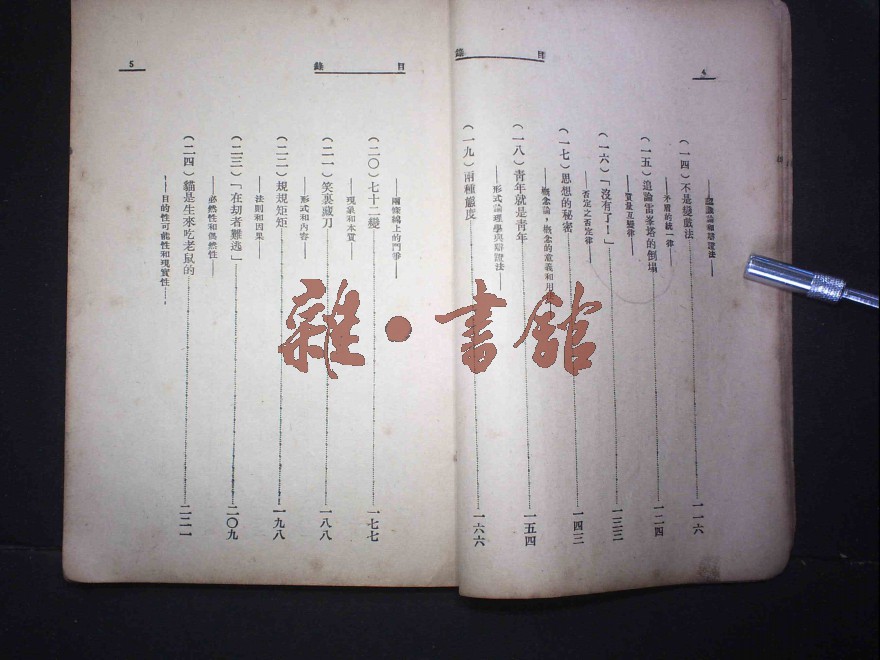 4
目錄
——認識論和辯證法——
（一四）不是變戲法……一一六
——矛盾的統一律——
（一五）追論雷峯塔的倒塌……一二四
——質量互變律——
（一六）「沒有了！」……一三三
——否定之否定律——
（一七）思想的秘密……一四三
——概念論，概念的意義和用
（一八）青年就是青年……一五四
——形式論理學與辯證法——
（一九）兩種態度……一六六
目錄
5
——兩條線上的鬥爭——
（二〇）七十二變……一七七
——現象和本質——
（二一）笑裏藏刀……一八八
——形式和內容——
（二二）規規矩矩……一九八
——法則和因果——
（二三）「在劫者難逃」……二〇九
——必然性和偶然性——
（二四）貓是生來吃老鼠的……二二一
——目的性可能性和現實性——
雜·書館